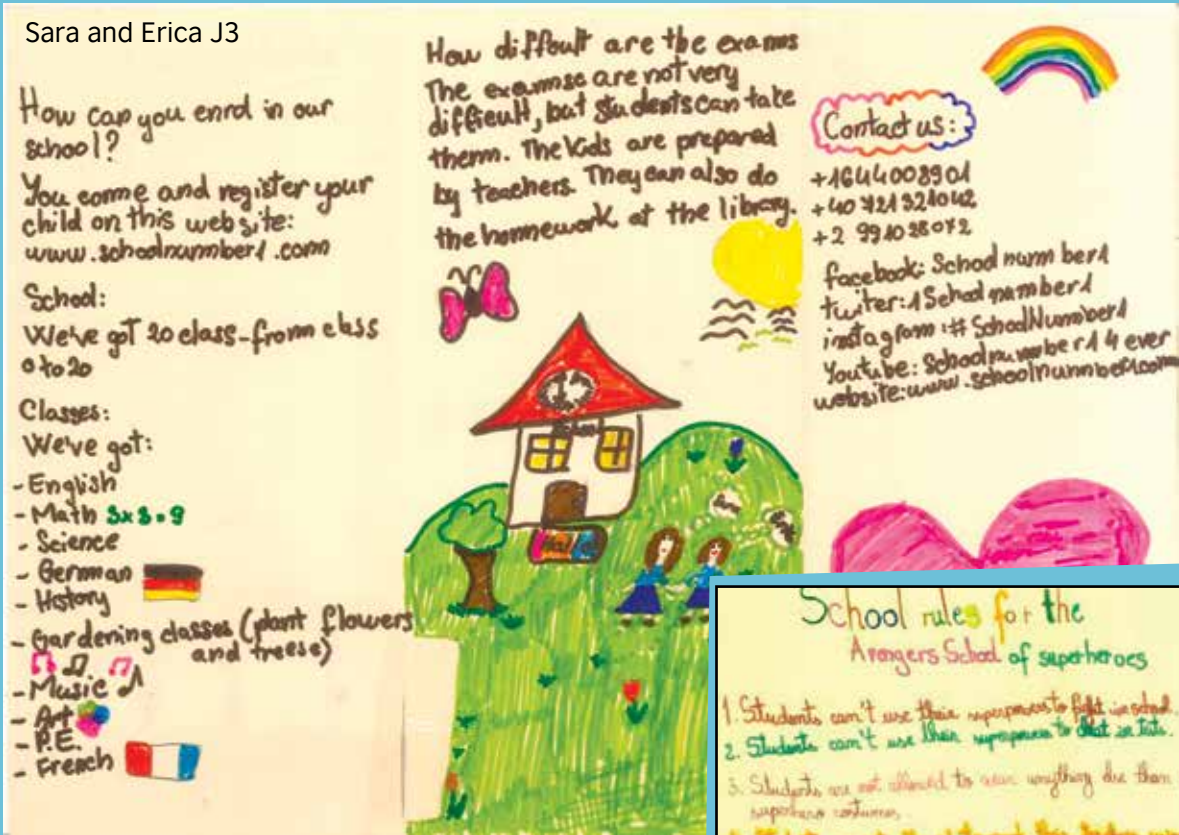 Sara and Erica J3
How can you enrol in our
school?
You come and register your
child on this website:
www.schoolnumber1.com
School:
We've got 20 class-from class
0 to 20
Classes:
We've got:
- English
- Math 3x3=9
- Science
- German
- History
- Gardening classes (plant flowers
and treese)
- Music
- Art
- P.E.
- French
How difficult are the exams
The examse are not very
difficult, but students can take
them. The kids are prepared
by teachers. They can also do
the homework at the library.
School
Contact us:
+1644008901
+40721321042
+2 991038072
facebook: School number1
twiter:1School number1
instagram:# SchoolNumber1
Youtube: Schoolnumber1 4 ever
website:www.schoolnumber1.com
School rules for the
Avangers School of superheroes
1. Students can't use their superpowers to fight in school.
2. Students can't use their superpowers to cheat in tests.
3. Students are not allowed to wear anything else than
superhero costumes.